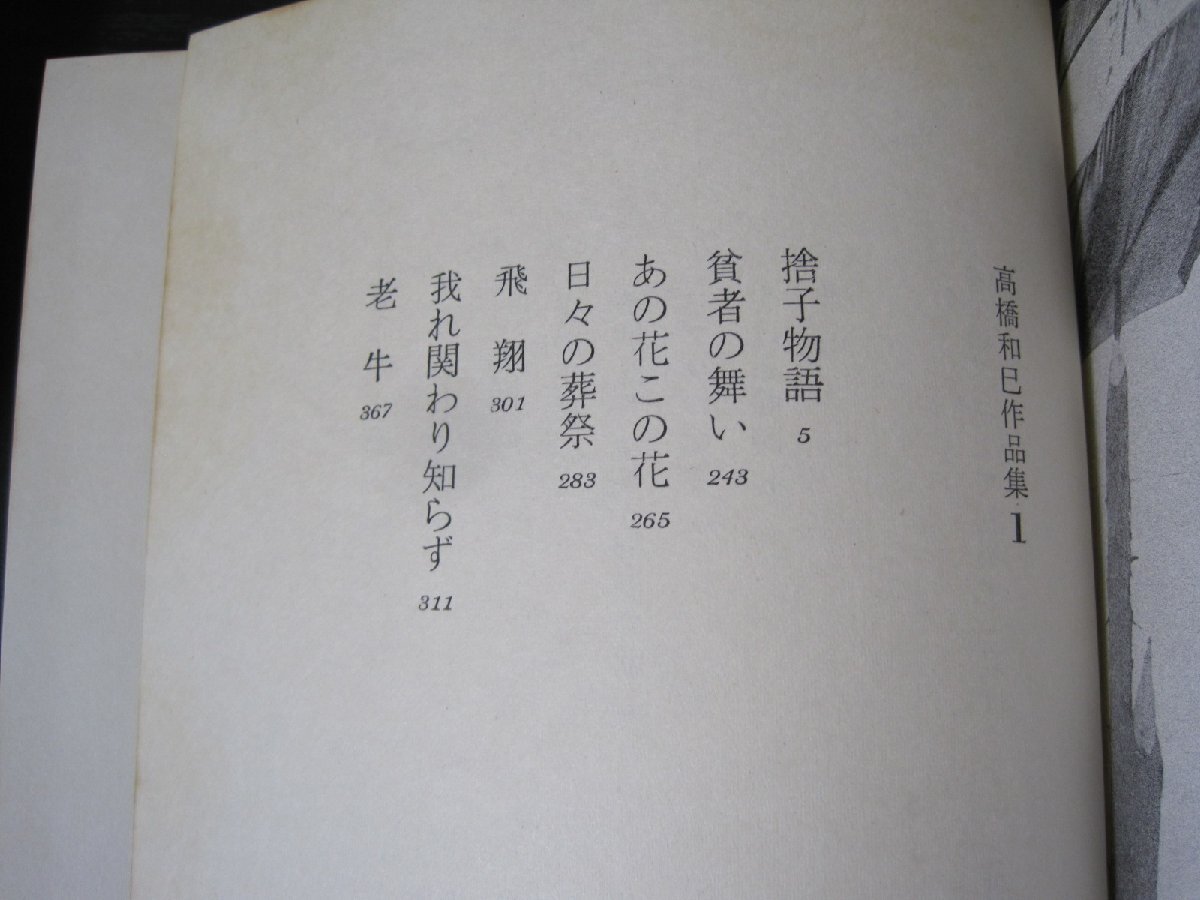 高橋和巳作品集 1
捨子物語 5
貧者の舞い 243
あの花この花 265
日々の葬祭 283
飛翔 301
我れ関わり知らず 311
老牛 367